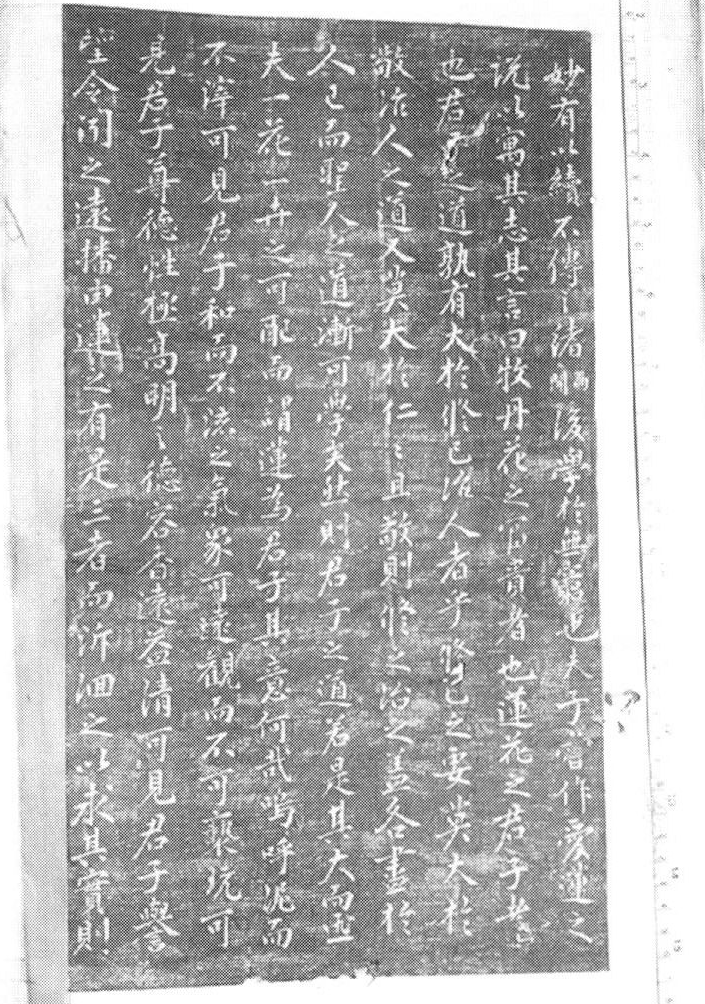 妙有以續不傳之緒開後學於無窮也夫子嘗作愛蓮之
説以寓其志其言曰牧丹花之富貴者也蓮花之君子者
也君子之道孰有大於修己治人者乎修己之要莫大於
敬治人之道又莫大於仁仁且敬則修之治之盖各盡於
人己而聖人之道漸可學矣然則君子之道若是其大而
夫一花一卉之可配而謂蓮為君子其意何哉嗚呼泥而
不滓可見君子和而不流之氣象可遠觀而不可褻玩可
見君子尊德性極高明之德容香遠益清可見君子譽
望令聞之遠播由蓮之有是三者而泝洄之以求其實則